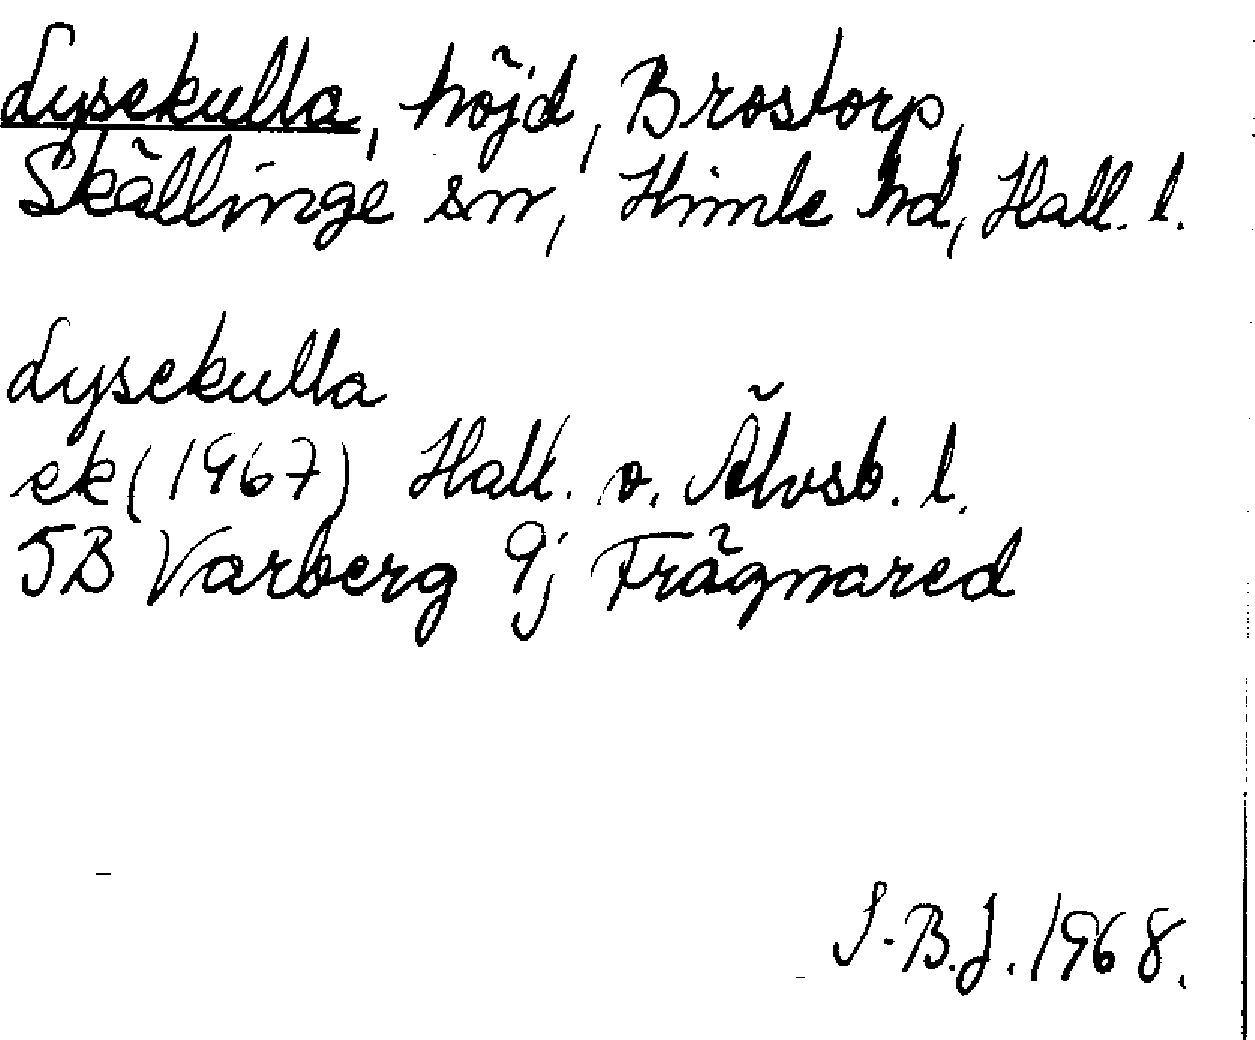 Lysekulla, höjd, Brostorp,
Skällinge sn, Himle hd, Hall. l.
Lysekulla
ek (1967) Hall. o. Älvsb. l.
5B Varberg 9j Frägnared
S.B.J. 1968.